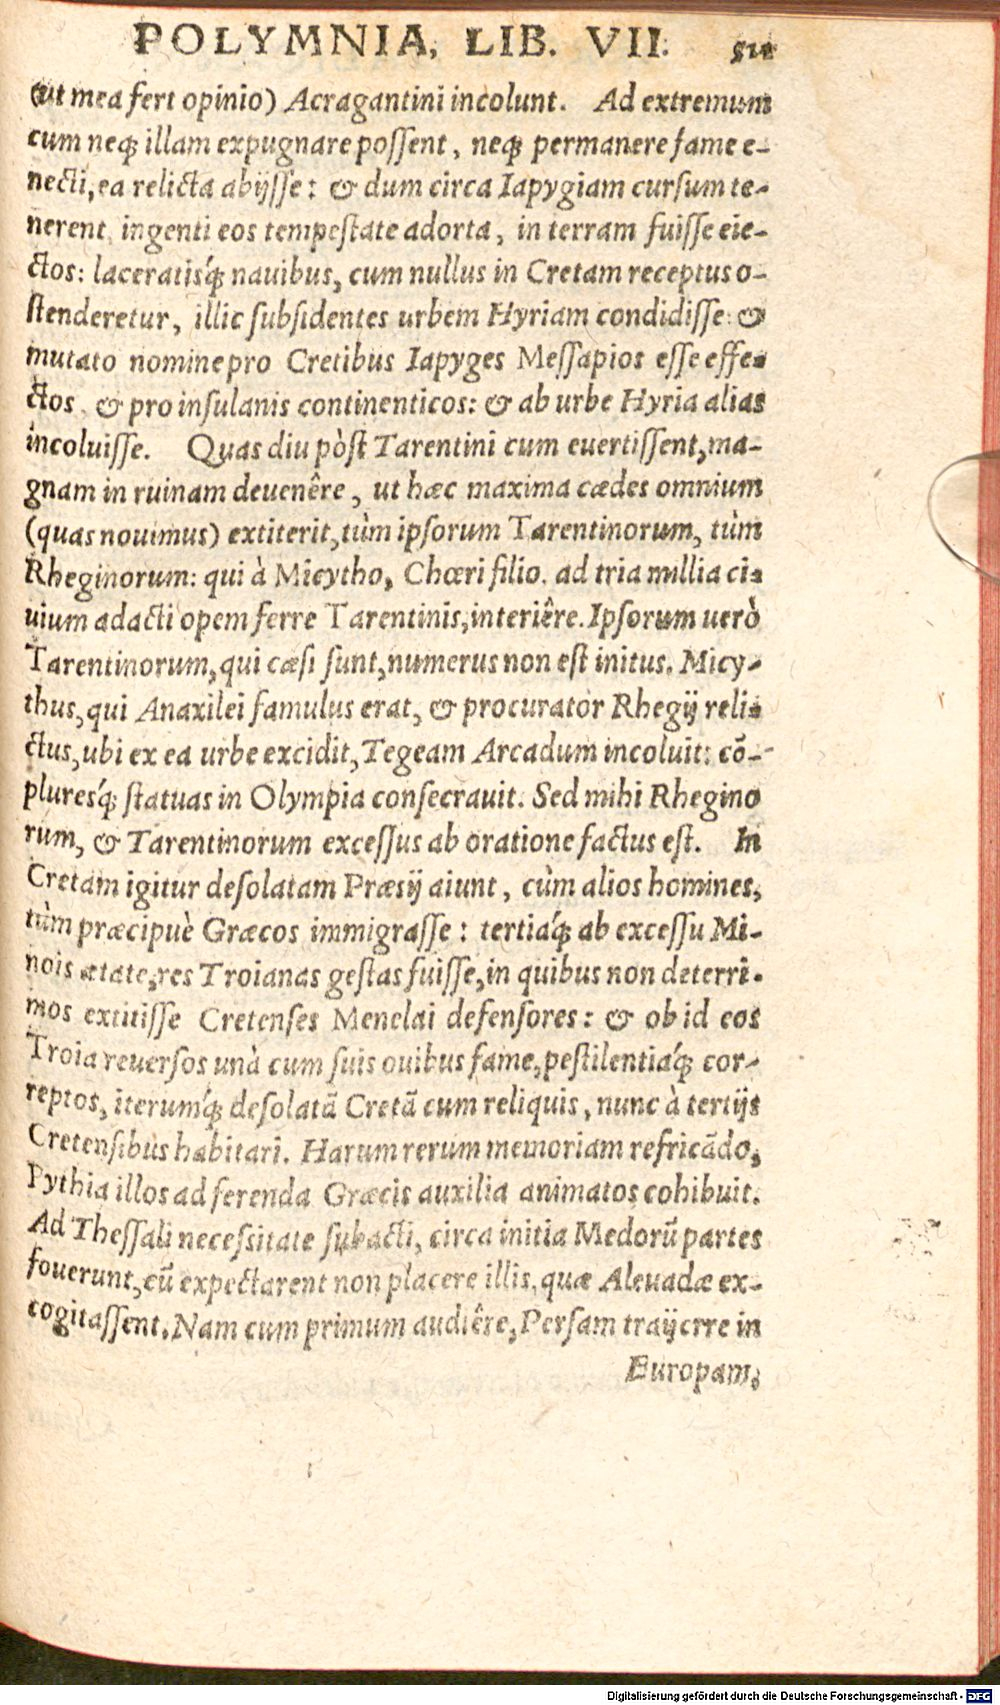 POLYMNIA, LIB. VII. 511
(ut mea fert opinio) Acragantini incolunt. Ad extremum
cum neq; illam expugnare poſſent, neq; permanere fame e-
necti, ea relicta abijſſe: & dum circa Iapygiam curſum te-
nerent, ingenti eos tempeſtate adorta, in terram fuiſſe eie-
ctos: laceratisq́; nauibus, cum nullus in Cretam receptus o-
ſtenderetur, illic ſubſidentes urbem Hyriam condidiſſe: &
mutato nomine pro Cretibus Iapyges Meſſapios eſſe effe-
ctos, & pro inſulanis continenticos: & ab urbe Hyria alias
incoluiſſe. Quas diu pòſt Tarentini cum euertiſſent, ma-
gnam in ruinam deuenêre, ut hæc maxima cædes omnium
(quas nouimus) extiterit, tùm ipſorum Tarentinorum, tùm
Rheginorum: qui à Micytho, Chœri filio, ad tria millia ci-
uium adacti opem ferre Tarentinis, interiêre. Ipſorum uerò
Tarentinorum, qui cæſi ſunt, numerus non eſt initus. Micy-
thus, qui Anaxilei famulus erat, & procurator Rhegij reli-
ctus, ubi ex ea urbe excidit, Tegeam Arcadum incoluit: cō-
pluresq́; ſtatuas in Olympia conſecrauit. Sed mihi Rhegino
rum, & Tarentinorum exceſſus ab oratione factus eſt. In
Cretam igitur deſolatam Præſij aiunt, cùm alios homines,
tùm præcipuè Græcos immigraſſe: tertiaq́; ab exceſſu Mi-
nois ætate, res Troianas geſtas fuiſſe, in quibus non deterri-
mos extitiſſe Cretenſes Menelai defenſores: & ob id eos
Troia reuerſos unà cum ſuis ouibus fame, peſtilentiaq́; cor-
reptos, iterumq́; deſolatā Cretā cum reliquis, nunc à tertijs
Cretenſibus habitari. Harum rerum memoriam refricādo,
Pythia illos ad ferenda Græcis auxilia animatos cohibuit.
Ad Theſſali neceſsitate ſubacti, circa initia Medorū partes
fouerunt, cū expectarent non placere illis, quæ Aleuadæ ex-
cogitaſſent. Nam cum primum audiêre, Perſam traijcrre in
Europam,
Digitalisierung gefördert durch die Deutsche Forschungsgemeinschaft - DFG